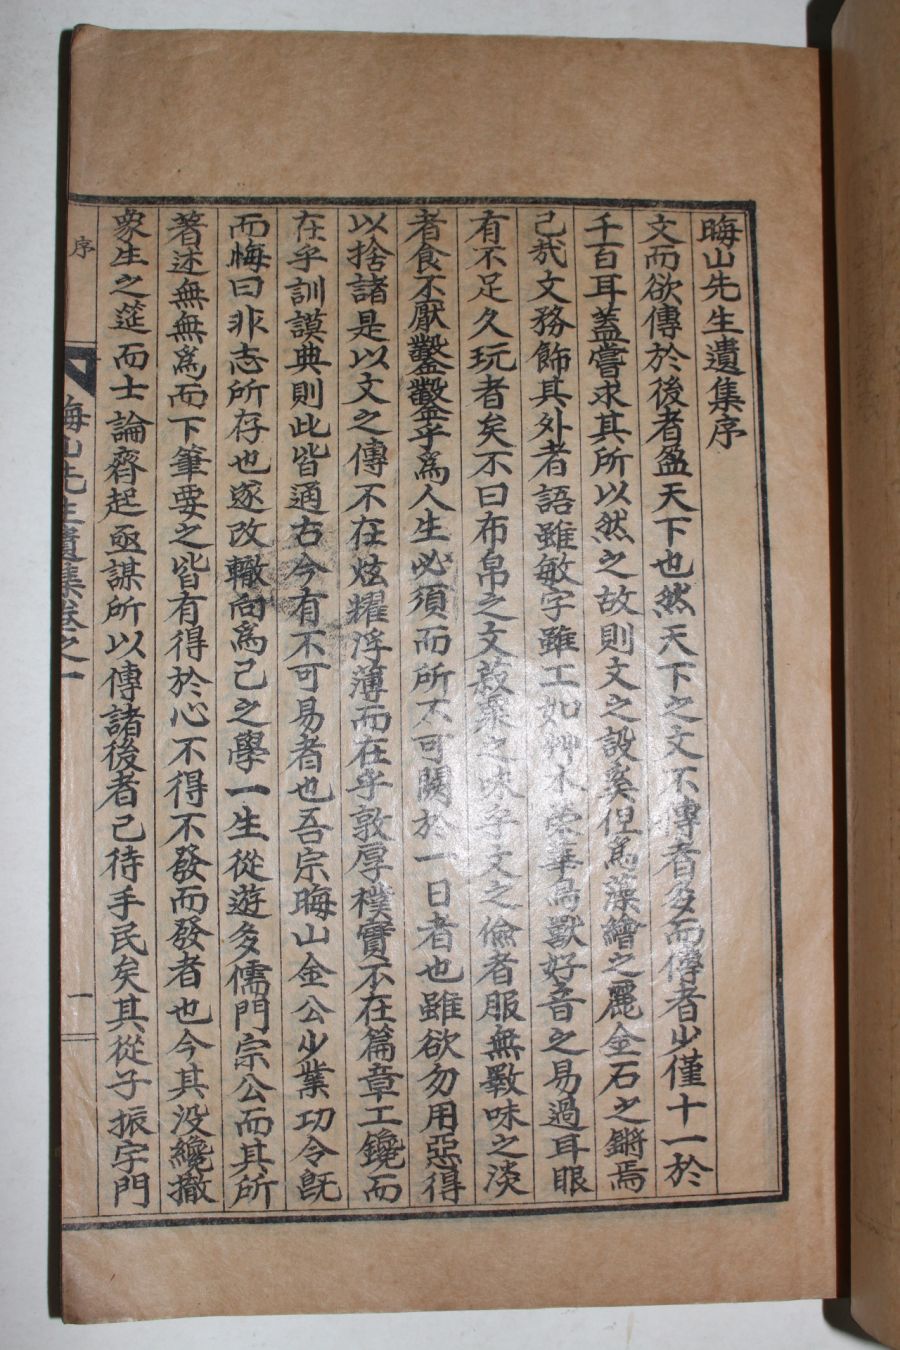 晦山先生遺集序
文而欲傳於後者盈天下也然天下之文不傳者多而傳者少僅十一於
千百耳蓋嘗求其所以然之故則文之設奚但爲藻繪之麗金石之鏘焉
已哉文務飾其外者語雖敏字雖工如艸木榮華鳥獸好音之易過耳眼
有不足久玩者矣不曰布帛之文菽粟之味乎文之儉者服無斁味之淡
者食不厭鑿鑿乎爲人生必須而所不可闕於一日者也雖欲勿用惡得
以捨諸是以文之傳不在炫耀浮薄而在乎敦厚樸實不在篇章工鑱而
在乎訓謨典則此皆通古今有不可易者也吾宗晦山金公少業功令旣
而悔曰非志所存也遂改轍向爲己之學一生從遊多儒門宗公而其所
著述無無爲而下筆要之皆有得於心不得不發而發者也今其没纔撤
象生之筵而士論齊起亟謀所以傳諸後者已待手民矣其從子振宇門
序
晦山先生遺集卷之一
一